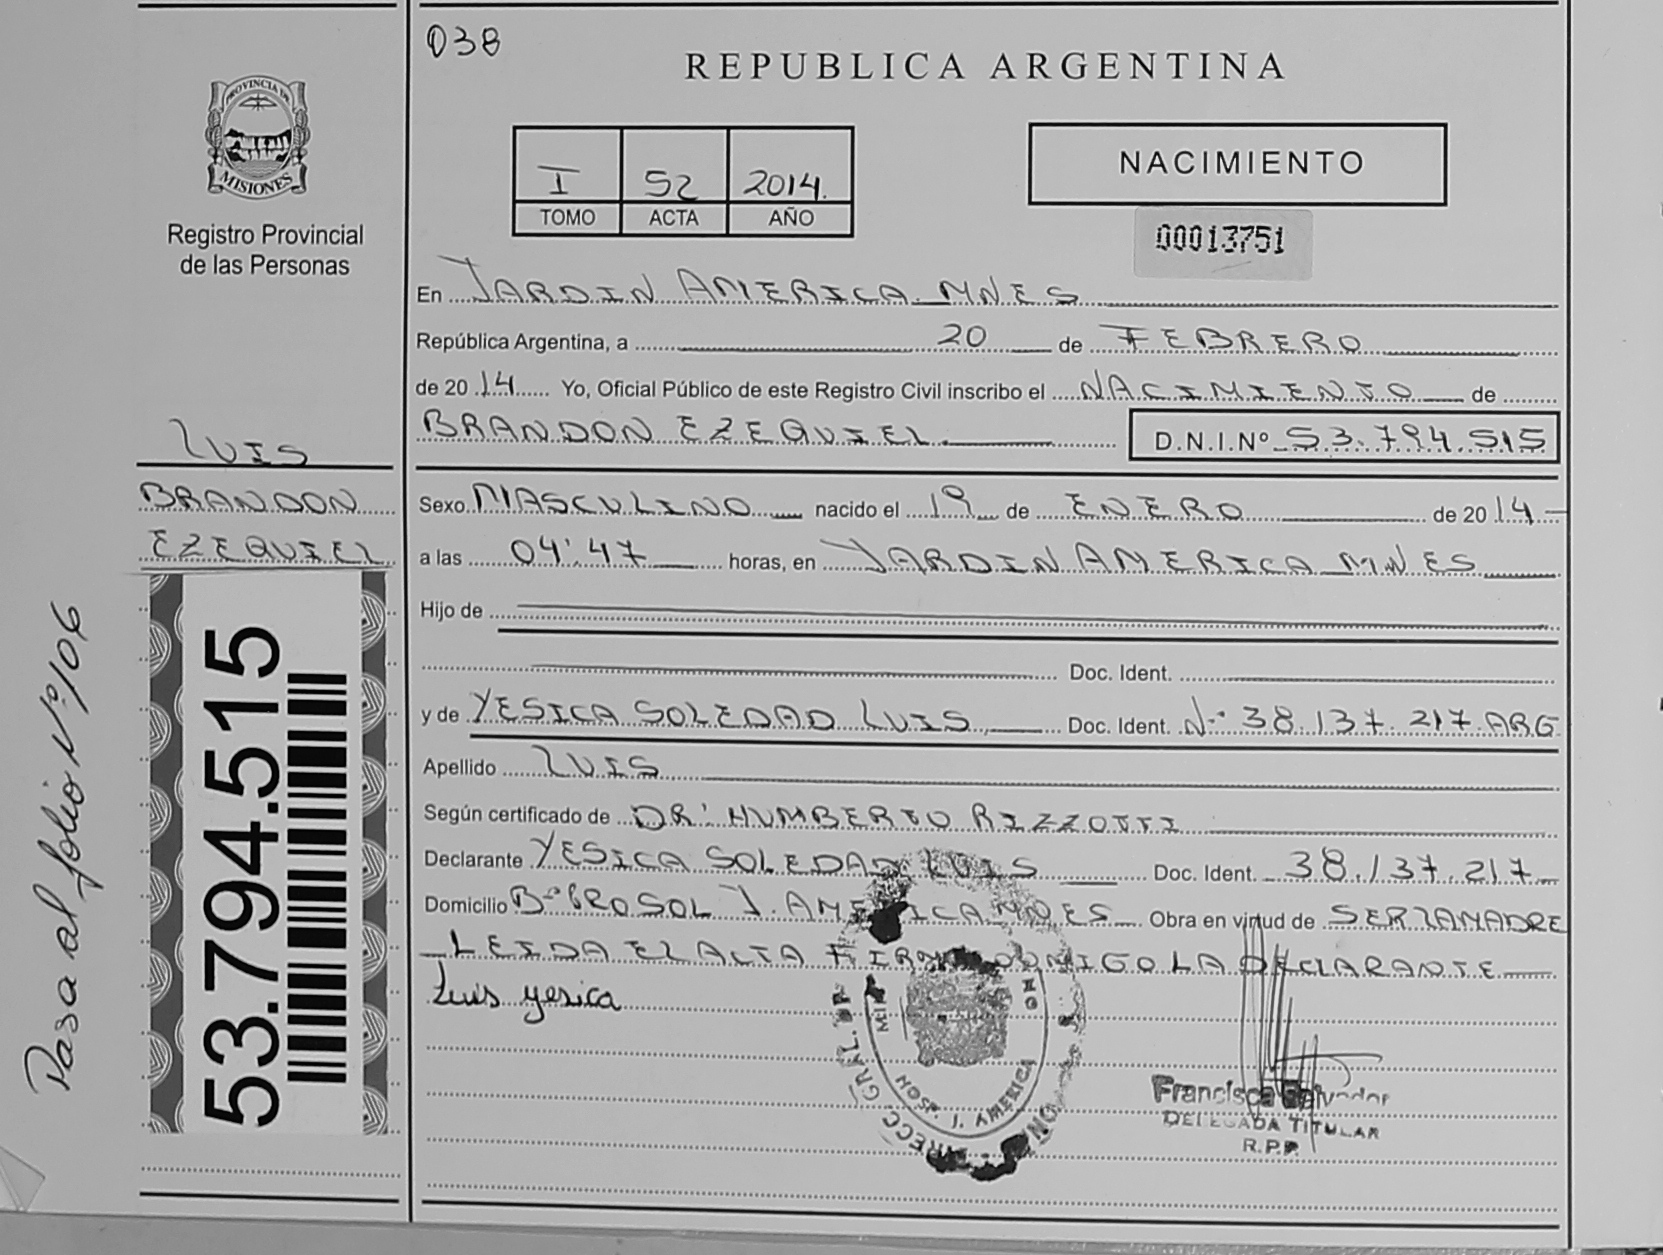 038
REPUBLICA ARGENTINA
PROVINCIA DE
MISIONES
Registro Provincial
de las Personas
I 52 2014.
TOMO ACTA AÑO
NACIMIENTO
00013751
En JARDIN AMERICA MNES
República Argentina, a 20 de FEBRERO
de 2014 Yo, Oficial Público de este Registro Civil inscribo el NACIMIENTO de
BRANDON EZEQUIEL D.N.I.Nº 53.794.515
LUIS
BRANDON
EZEQUIEL
53.794.515
Pasa al folio Nº 106
Sexo MASCULINO nacido el 19 de ENERO de 2014
a las 04:47 horas, en JARDIN AMERICA MNES
Hijo de
Doc. Ident.
y de YESICA SOLEDAD LUIS Doc. Ident. Nº 38.137.217 ARG
Apellido LUIS
Según certificado de DR: HUMBERTO RIZZOTTI
Declarante YESICA SOLEDAD LUIS Doc. Ident. 38.137.217
Domicilio Bº CROSOL J. AMERICA MNES Obra en virtud de SER LA MADRE
LEIDA EL ACTA FIRMA CONMIGO LA DECLARANTE
Luis yesica
DIRECC. GRAL. DE
HOSP. J. AMERICA
Francisca Salvador
DELEGADA TITULAR
R.P.P